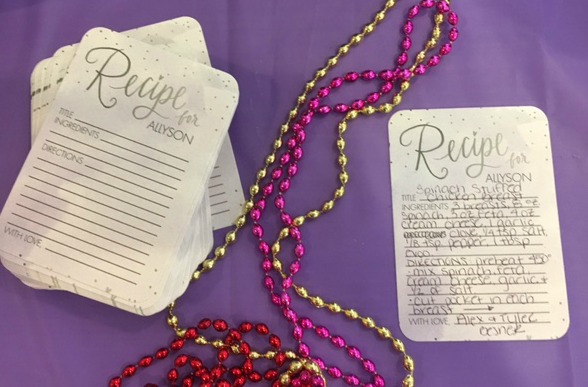 Recipe
for
ALLYSON
TITLE
INGREDIENTS
DIRECTIONS
WITH LOVE,
Recipe
for
ALLYSON
Spinach Stuffed
TITLE Chicken Breast
INGREDIENTS 3 breasts 8 oz
Spinach 5 oz feta 4 oz
cream cheese 1 garlic
clove, 1/4 tsp salt
1/8 tsp pepper, 1 tbsp
evoo
DIRECTIONS preheat 450°
mix spinach, feta
cream cheese, garlic &
1/2 of salt
cut pocket in each
breast
WITH LOVE, Alex & Tyler